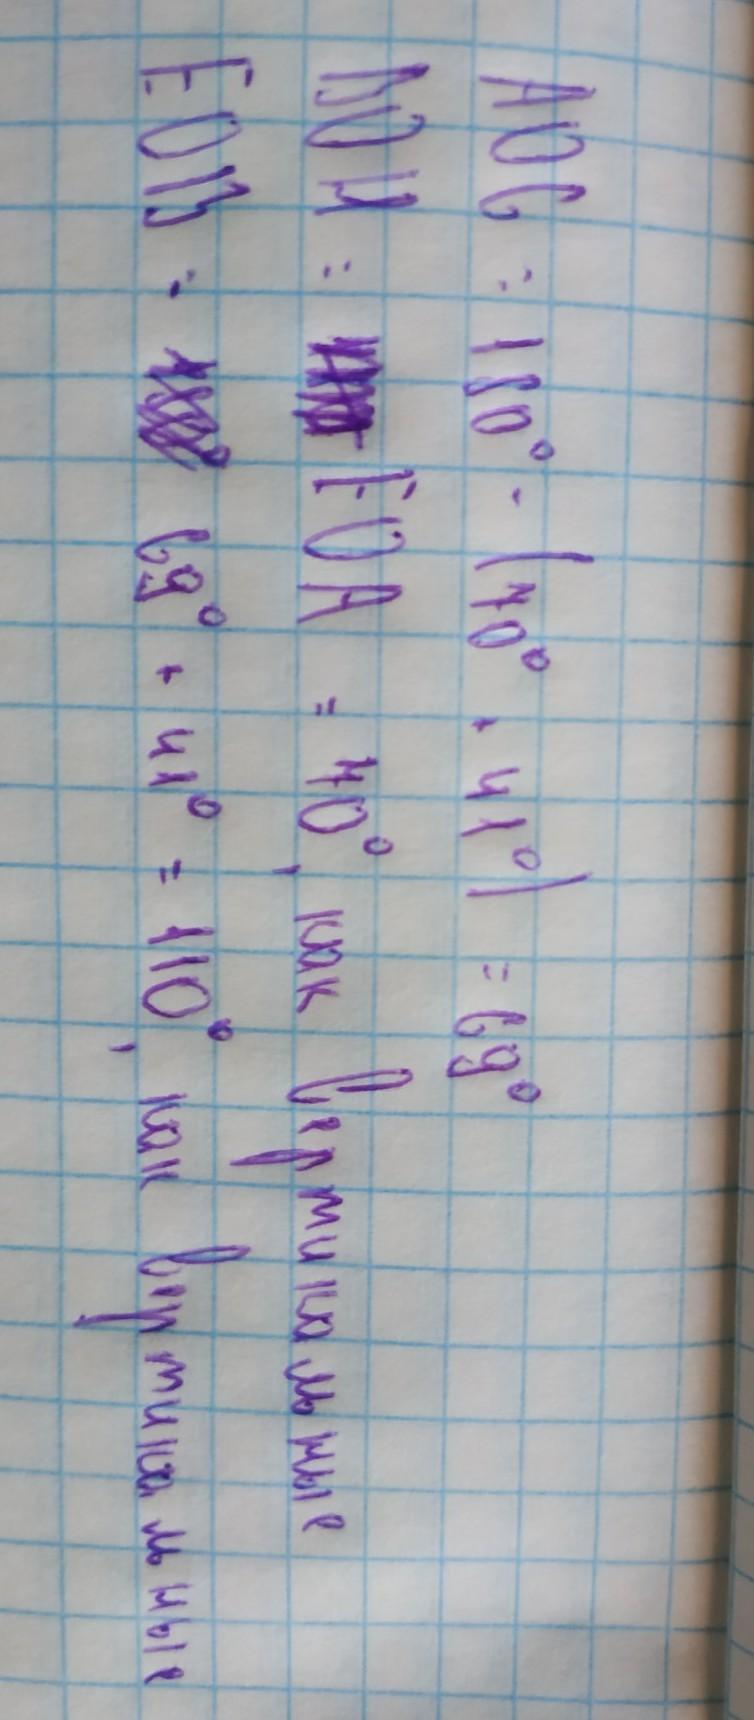 AOC = 180° - (70° + 41°) = 69°
BOK = EOA = 70°, как вертикальные
EOB = 69° + 41° = 110°, как вертикальные